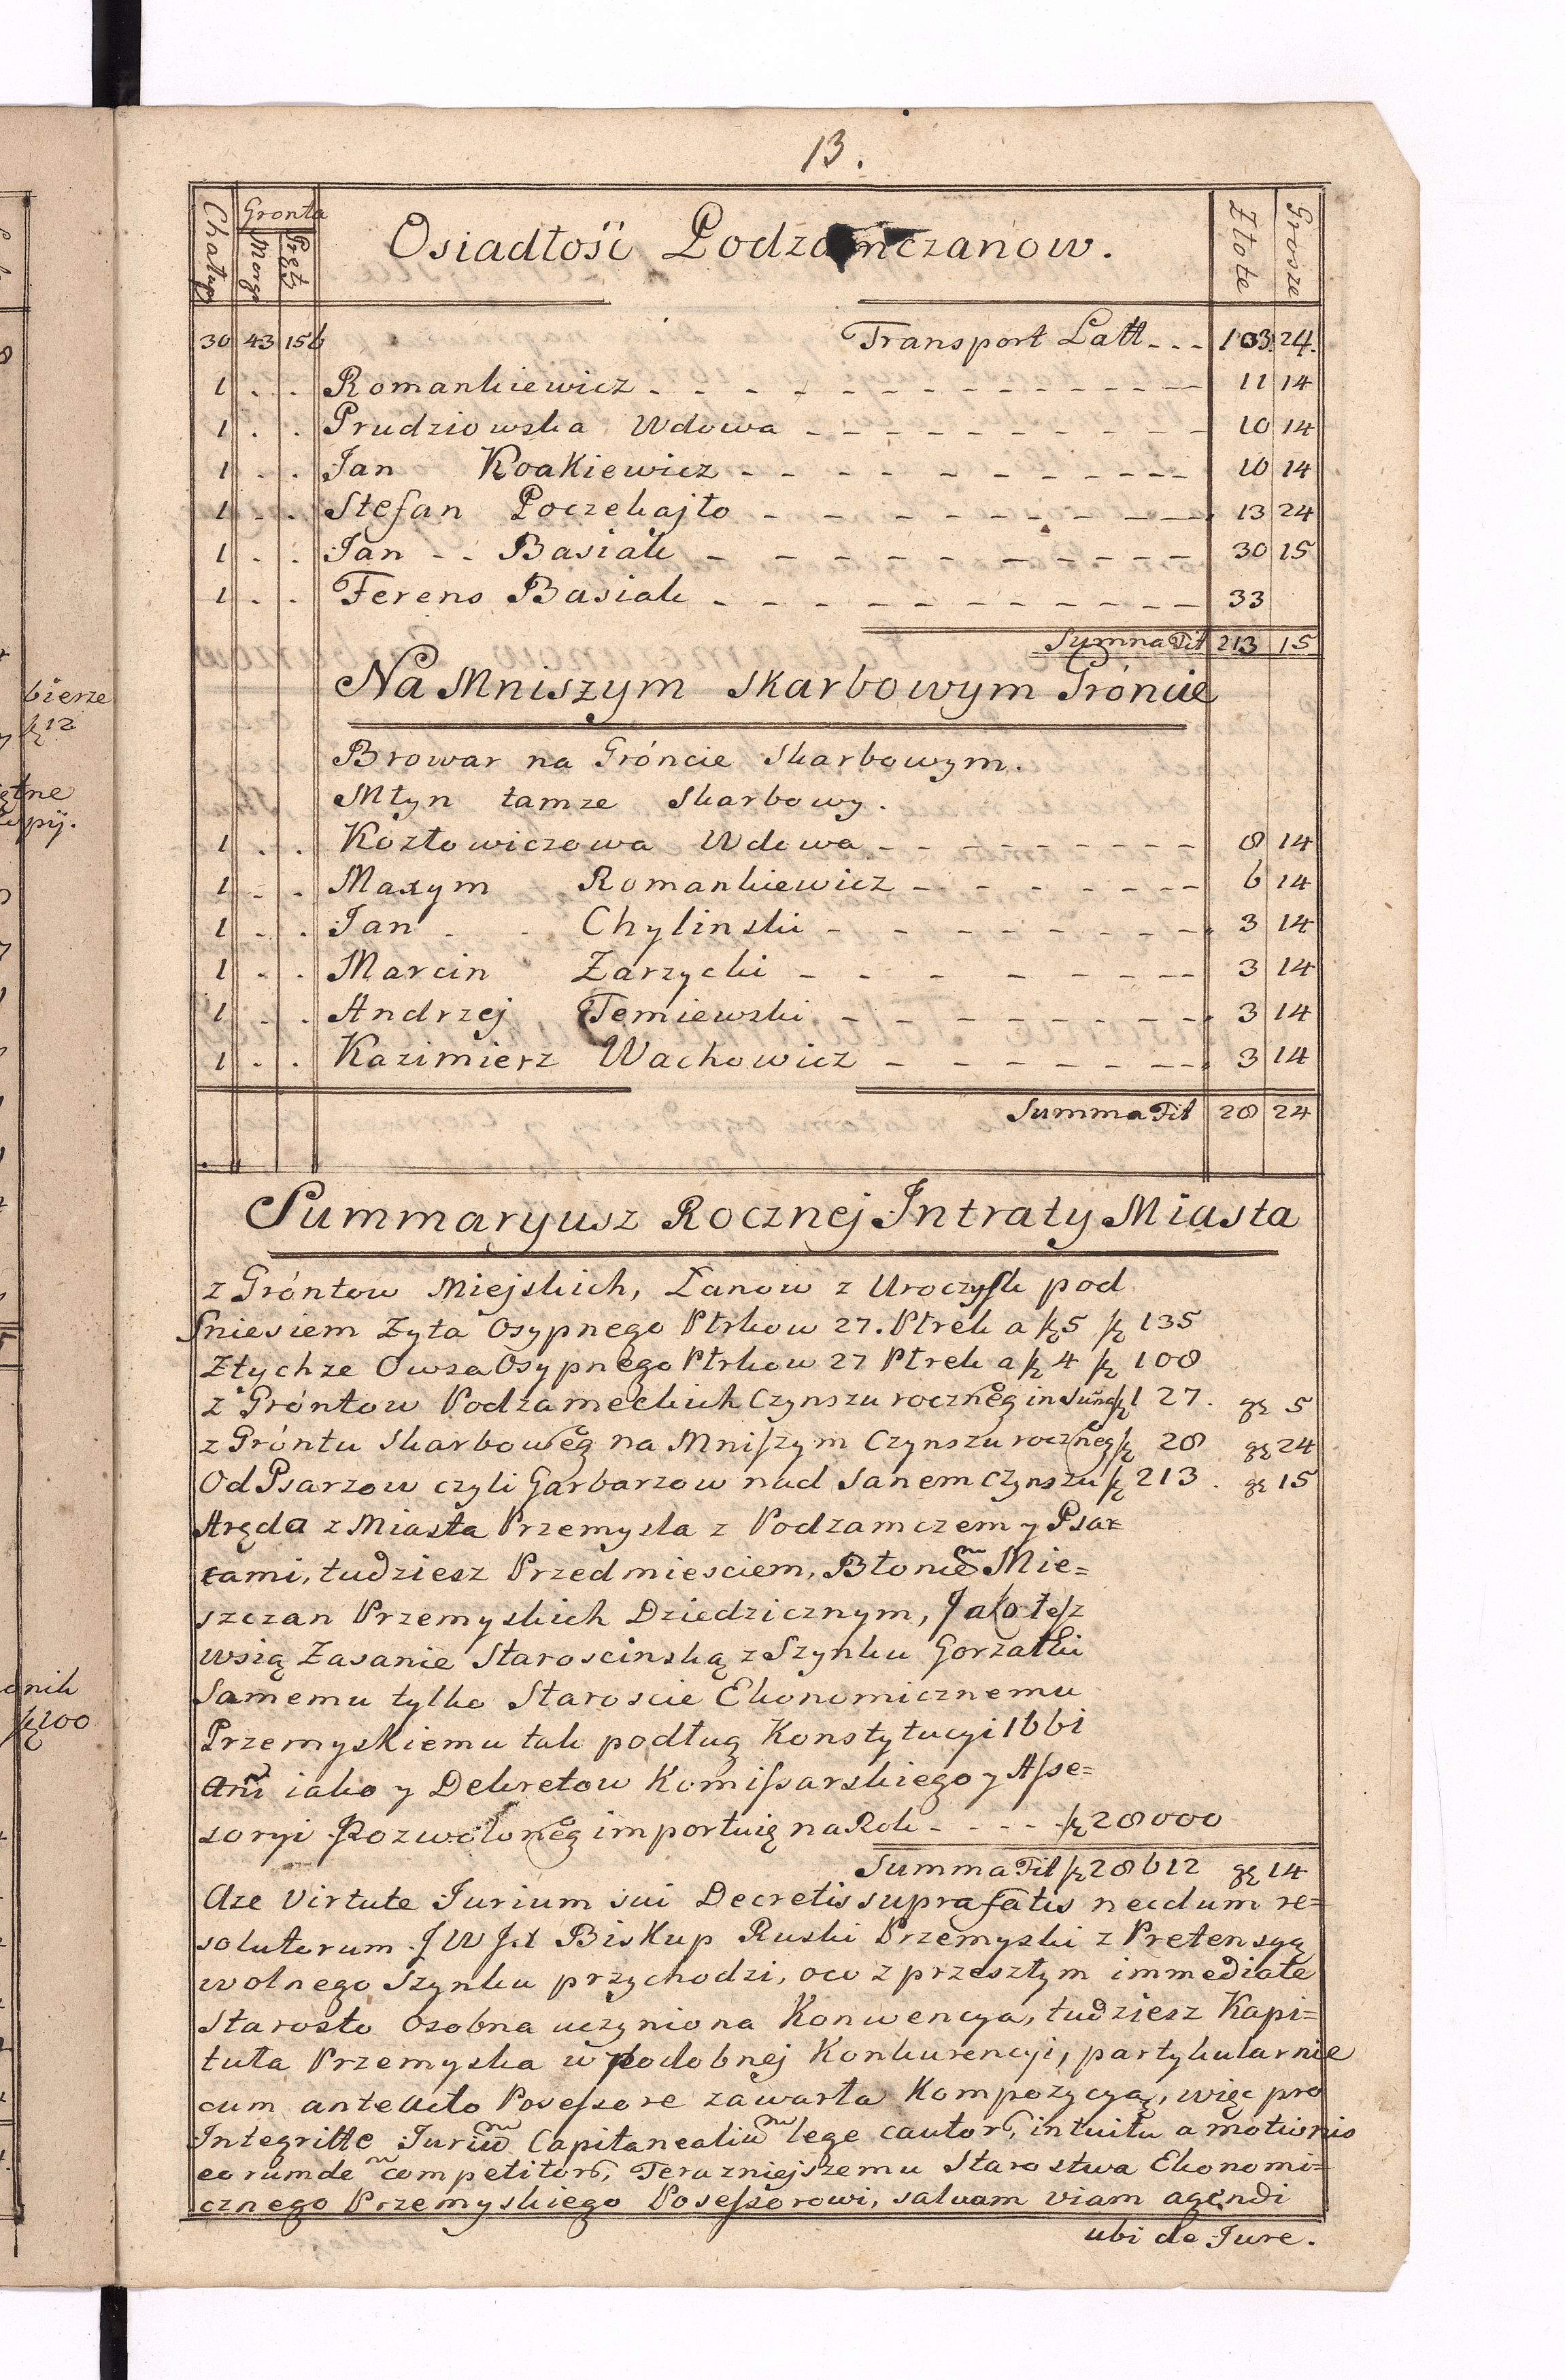 13.
Chałup Gronta Morgi Pręty Osiadłość Podzamczanow. Złote Grosze
30 43 156 Transport Latt - - - 103. 24.
1 . . Romankiewicz - - - 11 14
1 . . Prudziowska Wdowa - - - 10 14
1 . . Jan Koakiewicz - - - 10 14
1 . . Stefan Poczekajło - - - 13 24
1 . . Jan - - Basiak - - - 30 15
1 . . Ferens Basiak - - - 33
Summa Fit 213 15
Na Mniszym Skarbowym Gróncie
Browar na Gróncie Skarbowym.
Młyn tamze Skarbowy.
1 . . Kozłowiczowa Wdowa - - - 8 14
1 . . Maxym Romankiewicz - - - 6 14
1 . . Jan - - Chylinski - - - 3 14
1 . . Marcin Zarzycki - - - 3 14
1 . . Andrzej Temiewski - - - 3 14
1 . . Kazimierz Wachowicz - - - 3 14
Summa Fit 28 24
Summaryusz Rocznej Intraty Miasta
z Gróntow Miejskich, Łanow z Uroczysk pod
Sniesiem Zyta Osypnego Ptrkow 27. Ptrek a fl 5 fl 135
Ztychze Owsa Osypnego Ptrkow 27 Ptrek a fl 4 fl 108
z Gróntow Podzameckich Czynszu roczneg in Suma fl 127. gr 5
z Gróntu Skarboweg na Mniszym Czynszu roczneg fl 28 gr 24
Od Psarzow czyli Garbarzow nad Sanem Czynszu fl 213. gr 15
Aręda z Miasta Przemysla z Podzamczem y Psar=
rami, tudziesz Przedmiesciem, Błonie Mie=
szczan Przemyskich Dziedzicznym, Jako tesz
wsią Zasanie Staroscinską z Szynku Gorzałki
Samemu tylko Staroscie Ekonomicznemu
Przemyskiemu tak podług Konstytucyi 1661
Ani iako y Dekretow Komissarskiego y Asse=
soryi Rozwoloneg importuię na Rok - - - - fl 28000
Summa Fit fl 28612 gr 14
Aze Virtute Jurium sui Decretis supra fatis necdum re=
solutorum JWJX Biskup Ruski Przemyski z Pretensyą
wolnego Szynku przychodzi, oco z przeszłym immediate
Starosto Osobna uczyniona Konwencya, tudziesz Kapi=
tuła Przemyska w podobnej Konkurencyi, partykularnie
cum anteacto Possessore zawarła Kompozycyą, więc pro
Integritte Juriu Capitanealiu lege cautor, intuitu amotionis
eorumde competitor, Terazniejszemu Starostwa Ekonomi=
cznego Przemyskiego Possessorowi, salvam viam agendi
ubi de Jure.
bierze
fl 12
onik
fl 200